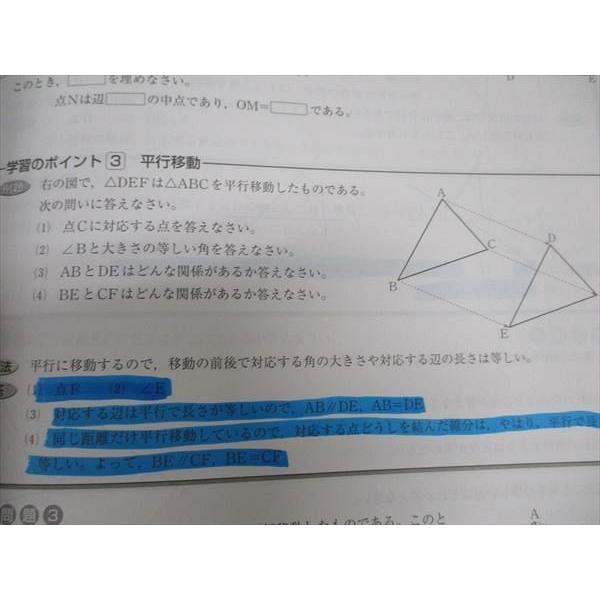 このとき，　を埋めなさい。
点Nは辺　の中点であり，OM＝　である。
D
E
学習のポイント 3 平行移動
右の図で，△DEFは△ABCを平行移動したものである。
次の問いに答えなさい。
(1) 点Cに対応する点を答えなさい。
(2) ∠Bと大きさの等しい角を答えなさい。
(3) ABとDEはどんな関係があるか答えなさい。
(4) BEとCFはどんな関係があるか答えなさい。
A
C
D
B
E
法 平行に移動するので，移動の前後で対応する角の大きさや対応する辺の長さは等しい。
(1) 点F (2) ∠E
(3) 対応する辺は平行で長さが等しいので，AB∥DE，AB＝DE
(4) 同じ距離だけ平行移動しているので，対応する点どうしを結んだ線分は，やはり，平行で長
等しい。よって，BE∥CF，BE＝CF
問題 3
したものである。このと
A